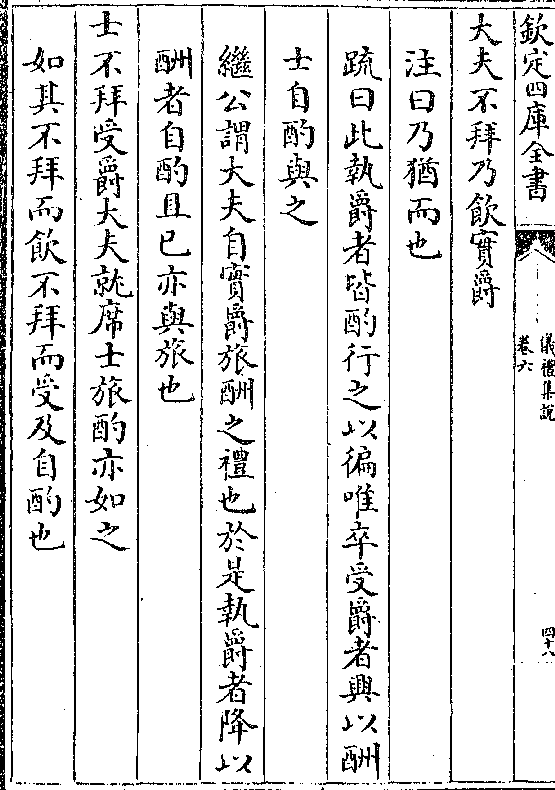 欽定四庫全書
儀禮集說
卷六
四十八
大夫不拜乃飲實爵
注曰乃猶而也
疏曰此執爵者皆酌行之以徧唯卒受爵者興以酬
士自酌與之
繼公謂大夫自實爵旅酬之禮也於是執爵者降以
酬者自酌且已亦與旅也
士不拜受爵大夫就席士旅酌亦如之
如其不拜而飲不拜而受及自酌也